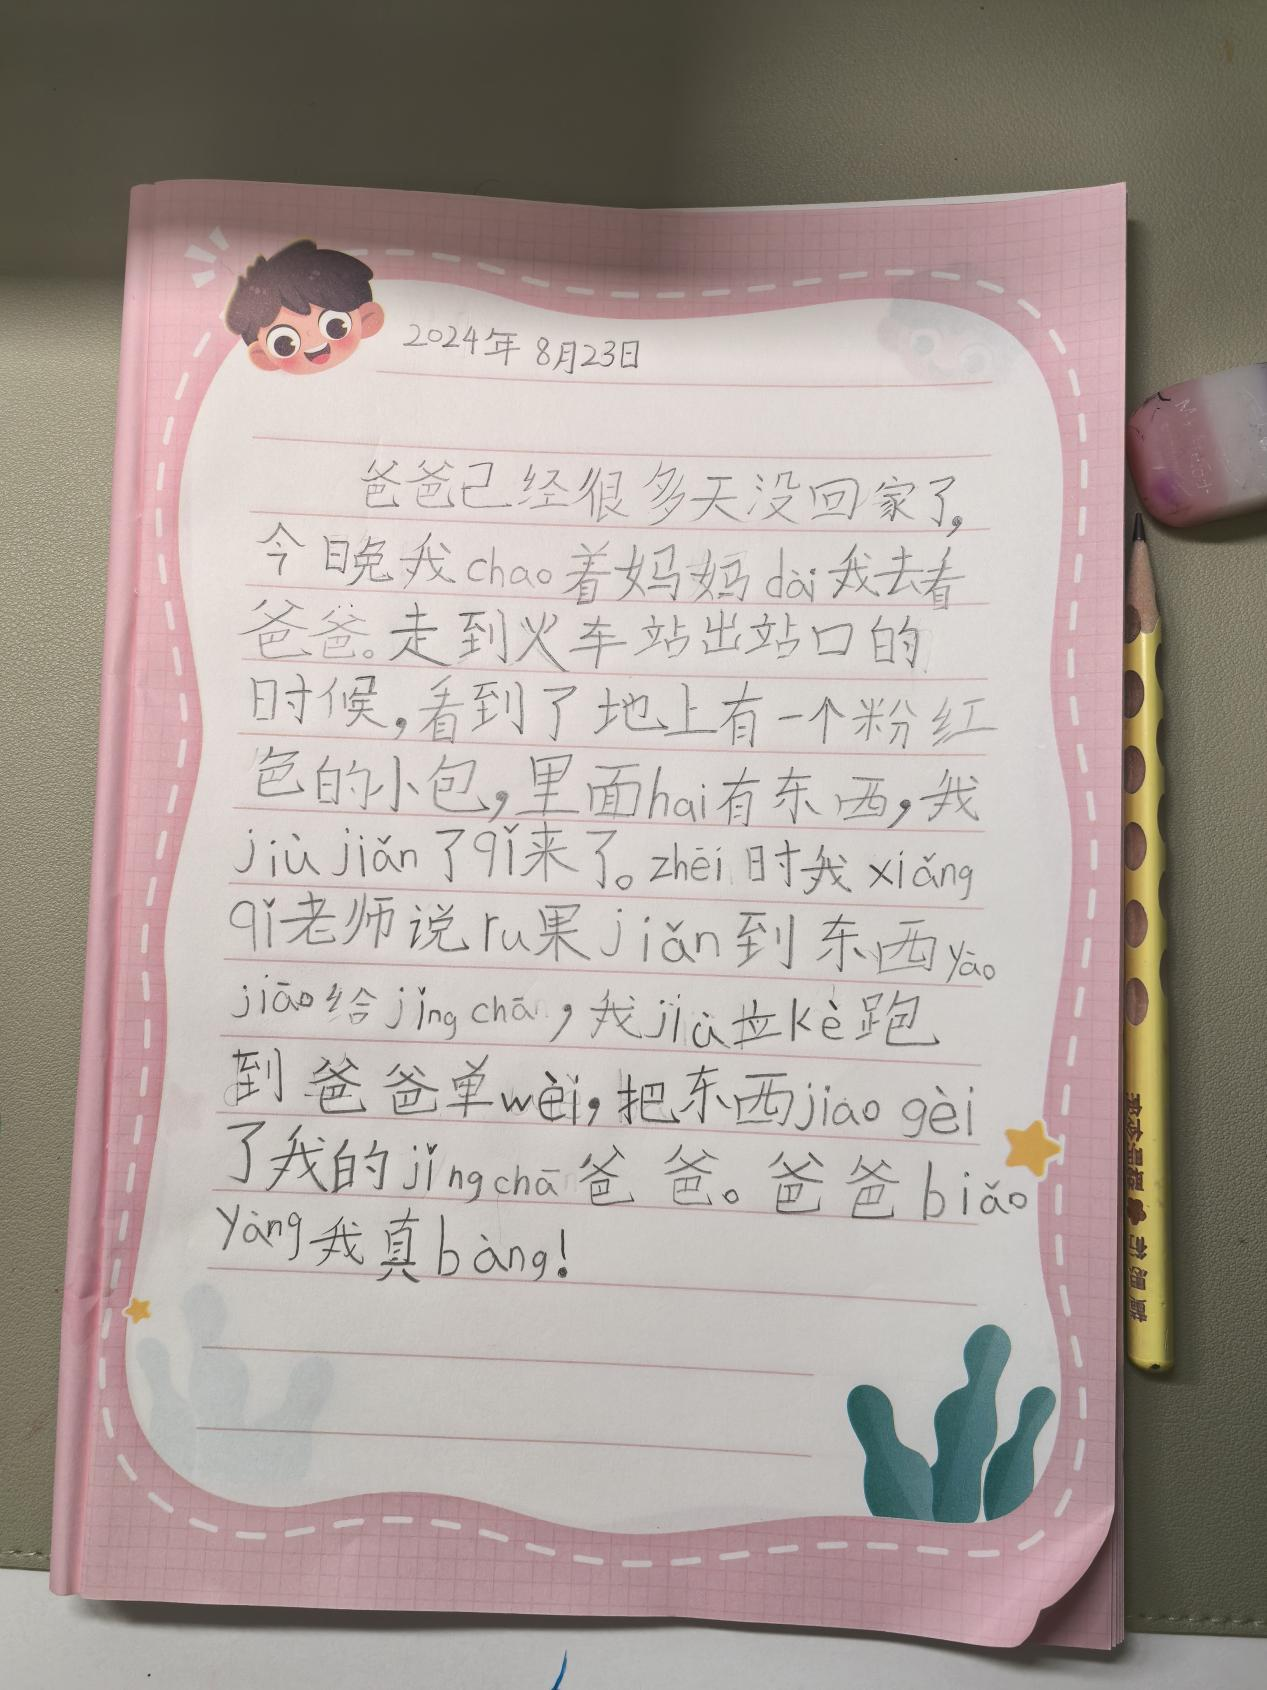 2024年8月23日
爸爸己经很多天没回家了,
今日晚我chao着妈妈dài我去看
爸爸。走到火车站出站口的
时候,看到了地上有一个粉红
色的小包,里面hai有东西,我
jiù jiǎn了qǐ来了。zhēi时我xiǎng
qǐ老师说ru果jiǎn到东西yào
jiāo给jǐngchā,我jiù立kè跑
到爸爸单wèi,把东西jiao gèi
了我的jǐngchā爸爸。爸爸biǎo
yàng我真bàng!